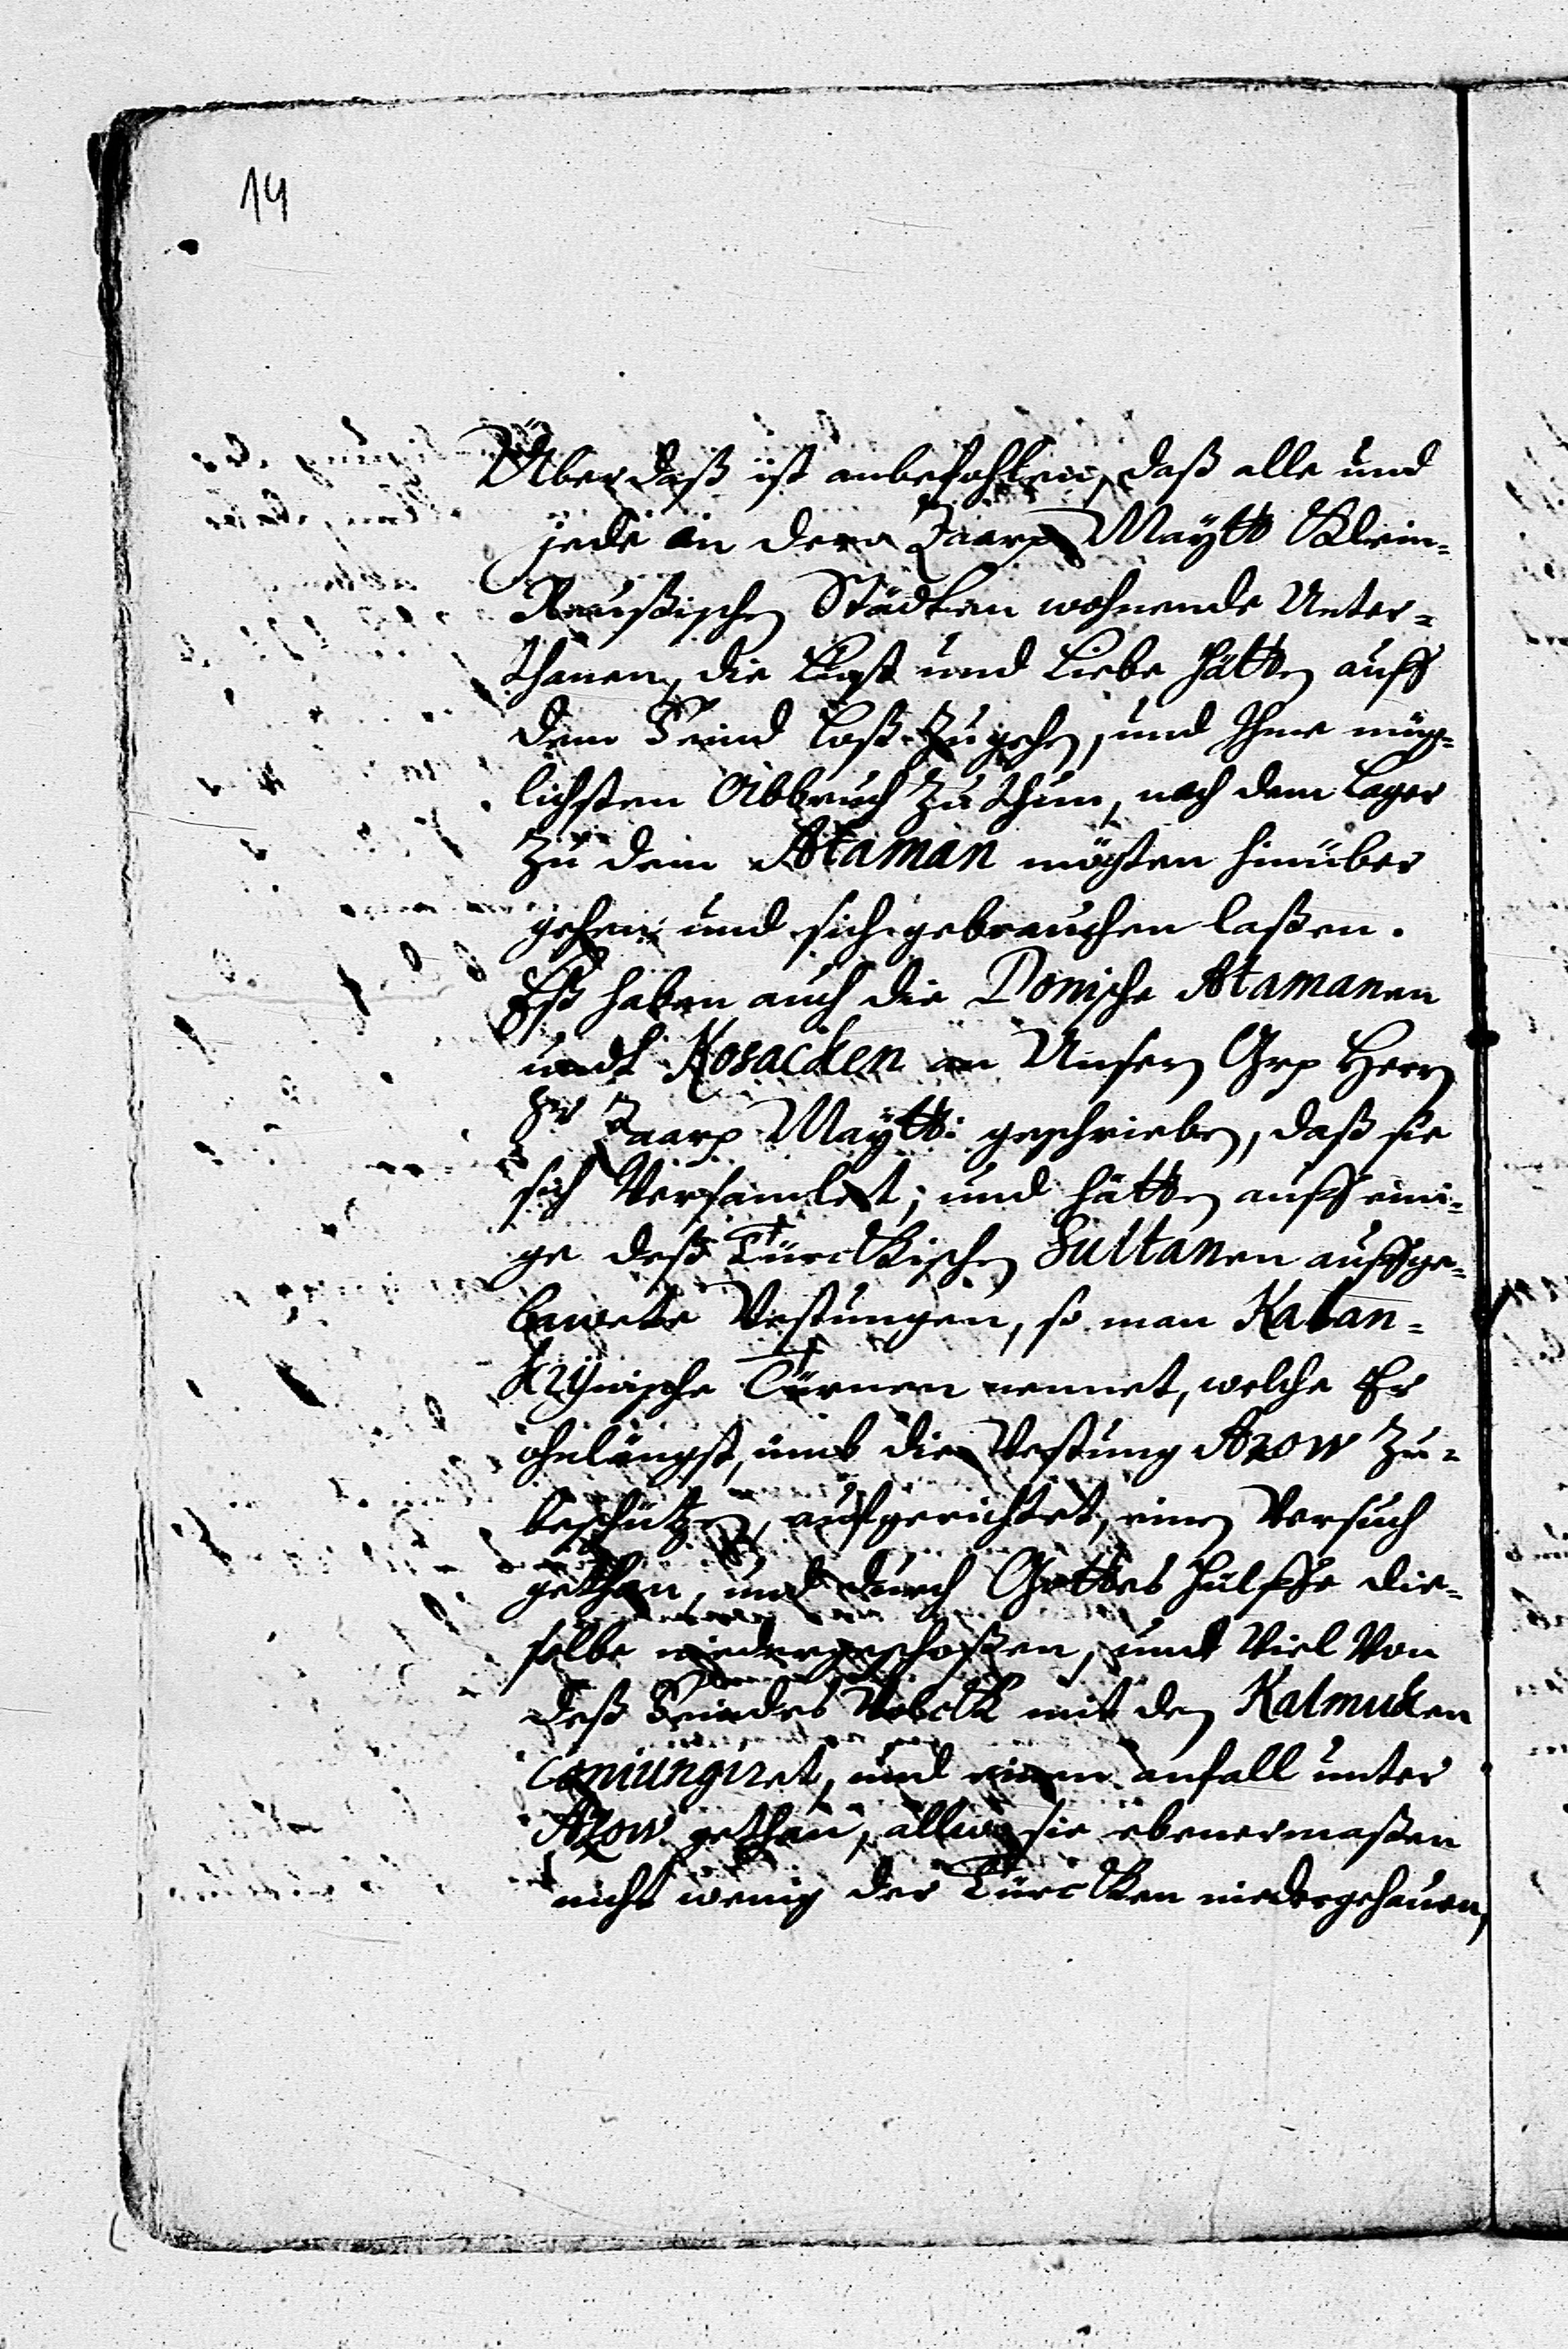 14
Uber daß ist anbefohlen, daß alle und
jede in dero Zaar Maytt Klein-
Reußischen Städten wohnende Unter-
thanen, die Lust und Liebe hätten auff
dem Feind loß zu gehen, und Ihme müg-
lichsten Abbruch zu thun, nach dem Lager
zu dem Ataman möchten hinüber
gehen und sich gebrauchen laßen.
Eß haben auch die Donische Atamanen
undt Kosacken an Unsern Gr Herrn
Zaar Maytt: geschrieben, daß sie
sich Versamlet; und hätten auff eini-
ge deß Türckischen Sultanen auffge-
bawete Vestungen, so man Kalan-
Türnen nennet, welche Er
ohnlängst, umb die Vestung Azow zu-
beschützen, aufgerichtet, einen Versuch
gethan, und durch Gottes hülffe die-
selbe niedergeschoßen, undt Viel Von
deß Feindes Volck mit den Kalmuken
coniungiret, und einen anfall unter
Azow gethan, allwo sie ebenermaßen
nicht wenig der Türcken niedergehauen,